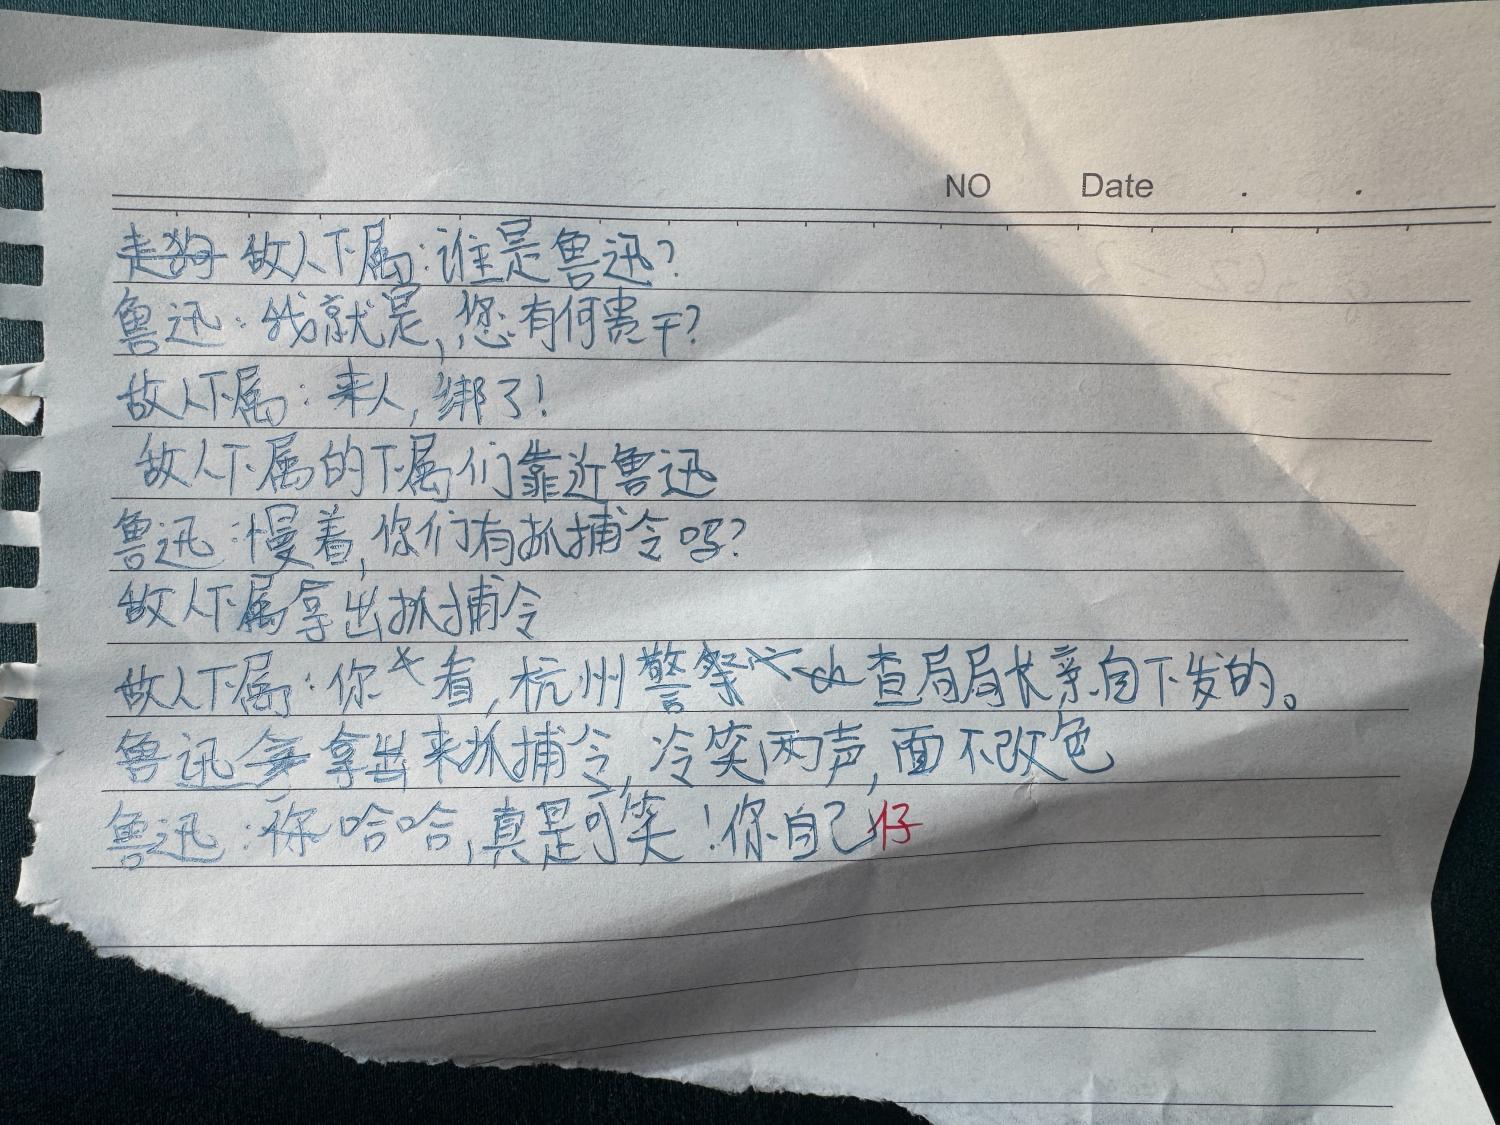 NO Date . .
走狗 敌人下属:谁是鲁迅?
鲁迅:我就是,您有何贵干?
敌人下属:来人,绑了!
敌人下属的下属们靠近鲁迅
鲁迅:慢着,你们有抓捕令吗?
敌人下属拿出抓捕令
敌人下属:你看,杭州警察ch查局局长亲自下发的。
鲁迅拿出来抓捕令,冷笑两声,面不改色
鲁迅:你哈哈,真是可笑!你自己仔